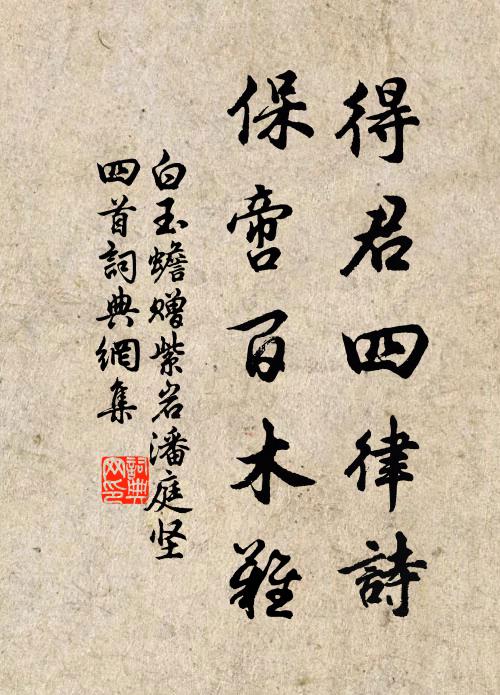 得君四律詩
保啻百木難
白玉蟾贈紫岩潘庭坚
四首詞典網集
詞典
网印